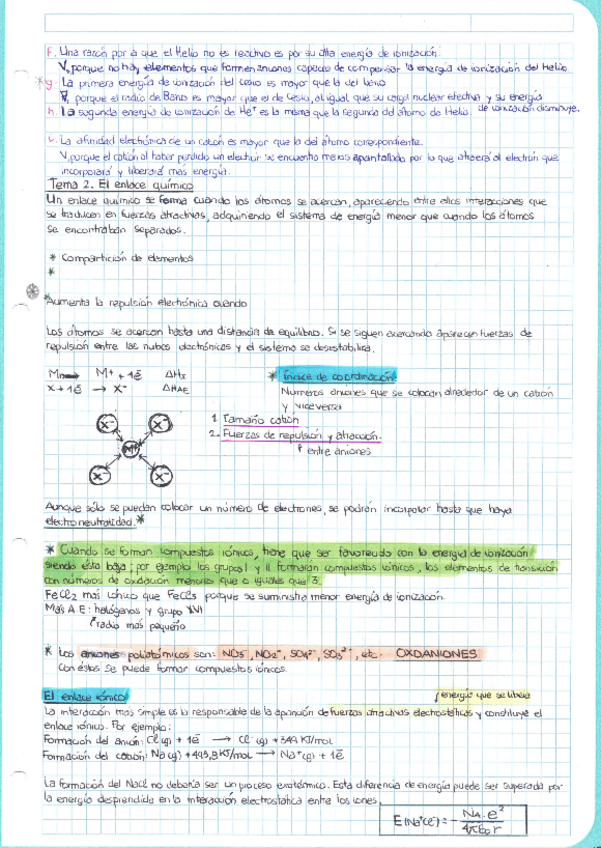 f. Una razón por la que el Helio no es reactivo es por su alta energía de ionización.
V, porque no hay elementos que formen aniones capaces de compensar la energía de ionización del Helio.
* g. La primera energía de ionización del cesio es mayor que la del bario
F, porque el radio de Bario es mayor que el de Cesio, al igual que su carga nuclear efectiva y su energía de ionización disminuye.
h. La segunda energía de ionización de He⁺ es la misma que la segunda del átomo de Helio.
i. La afinidad electrónica de un catión es mayor que la del átomo correspondiente.
V, porque el catión al haber perdido un electrón se encuentra menos apantallado por lo que atraerá al electrón que
incorporará y liberará más energía.
Tema 2. El enlace químico
Un enlace químico se forma cuando los átomos se acercan, apareciendo entre ellos interacciones que
se traducen en fuerzas atractivas, adquiriendo el sistema de energía menor que cuando los átomos
se encontraban separados.
* Compartición de elementos
*
* Aumenta la repulsión electrónica cuando
Los átomos se acercan hasta una distancia de equilibrio. Si se siguen acercando aparecen fuerzas de
repulsión entre las nubes electrónicas y el sistema se desestabiliza.
M → M⁺ + 1ē ΔH_I
X + 1ē → X⁻ ΔH_AE
* Índice de coordinación:
Números aniones que se colocan alrededor de un catión
y viceversa
1. Tamaño catión
2. Fuerzas de repulsión y atracción.
↑ entre aniones
X⁻ X⁻
M⁺
X⁻ X⁻
Aunque sólo se puedan colocar un número de electrones, se podrán incorporar hasta que haya
electroneutralidad.*
* Cuando se forman compuestos iónicos, tiene que ser favorecido con la energía de ionización
siendo ésta baja; por ejemplo los grupos I y II formarán compuestos iónicos, los elementos de transición
con números de oxidación menores que o iguales que 3.
FeCl₂ más iónico que FeCl₃ porque se suministra menor energía de ionización.
Más A E: halógenos y grupo XVI
↑ radio más pequeño
* Los aniones poliatómicos son: NO₃⁻, NO₂⁻, SO₄²⁻, SO₃²⁻, etc. OXOANIONES
Con éstos se puede formar compuestos iónicos.
El enlace iónico
↑ energía que se libera
La interacción más simple es la responsable de la aparición de fuerzas atractivas electrostáticas y constituye el
enlace iónico. Por ejemplo:
Formación del anión: Cl(g) + 1ē → Cl⁻(g) + 349 KJ/mol
Formación del catión: Na(g) + 495,8 KJ/mol → Na⁺(g) + 1ē
La formación del NaCl no debería ser un proceso exotérmico. Esta diferencia de energía puede ser superada por
la energía desprendida en la interacción electrostática entre los iones.
E(Na⁺Cl⁻) = - NA·e² / 4πε₀r